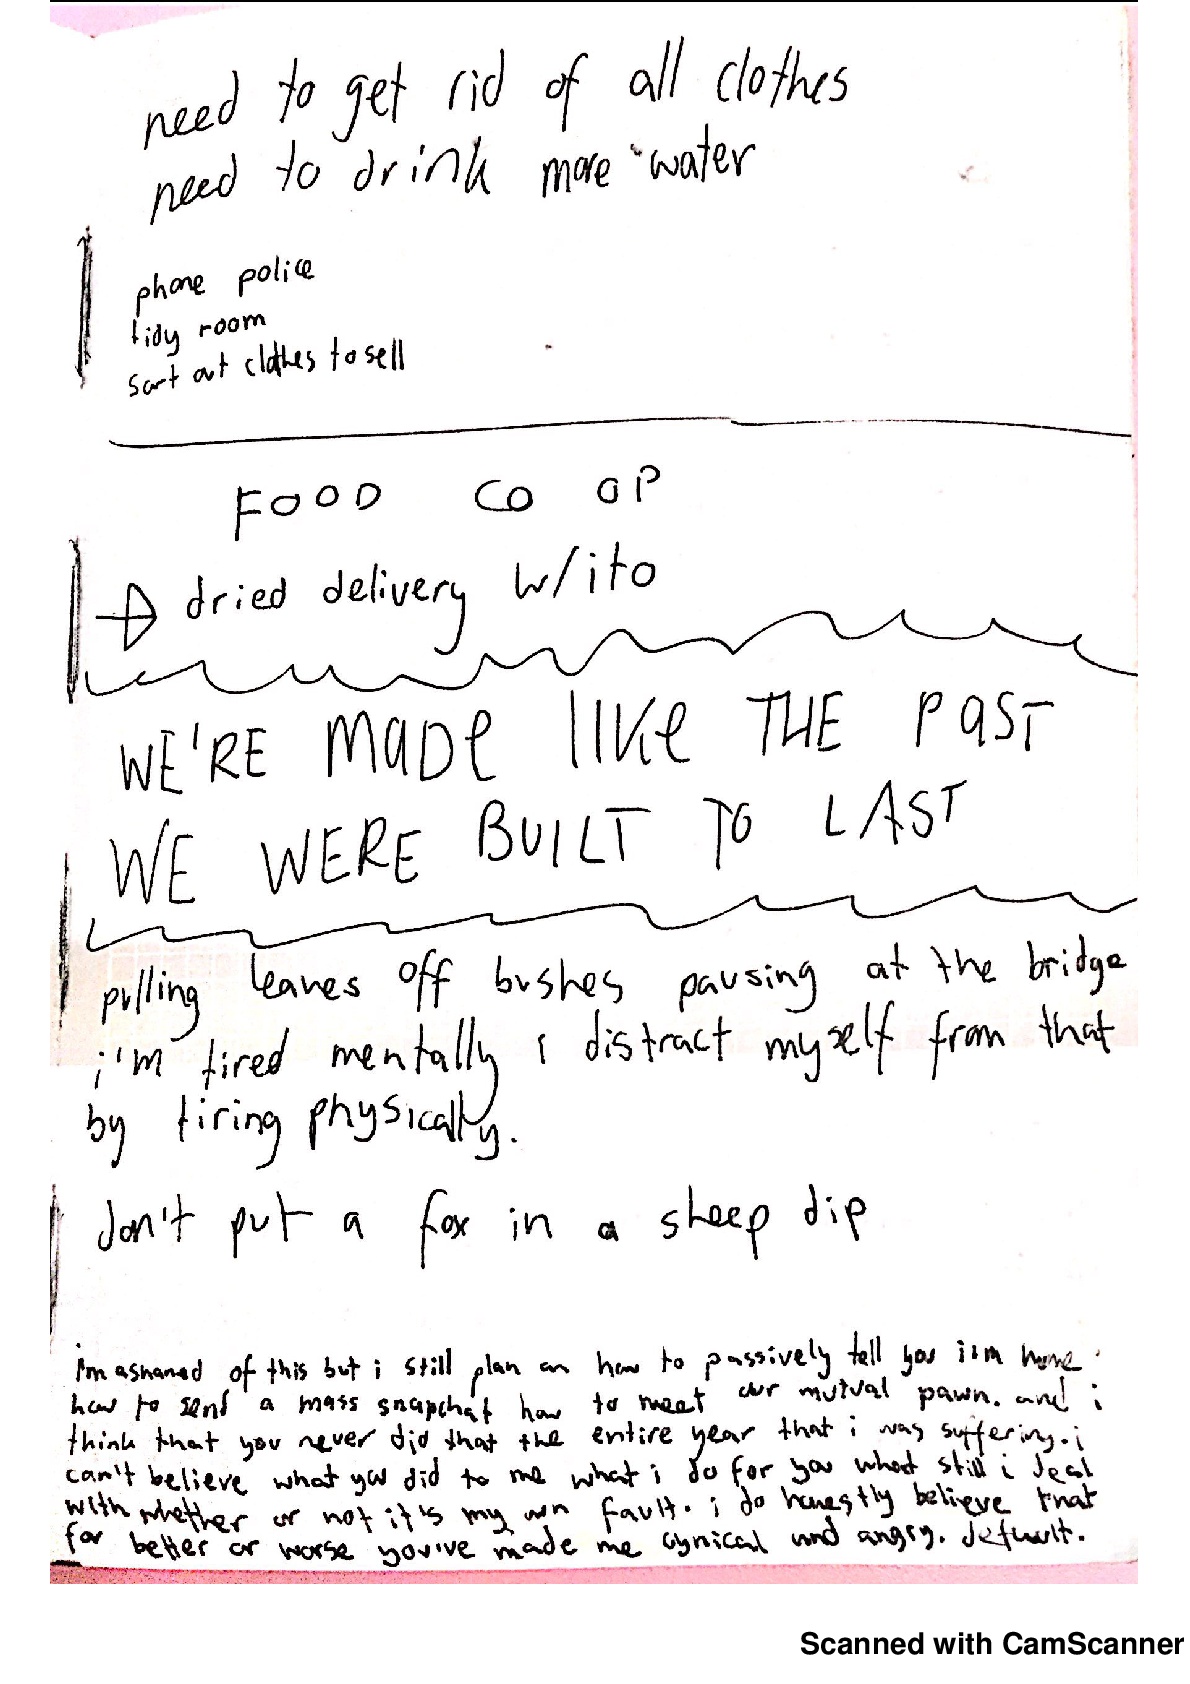 need to get rid of all clothes
need to drink more water
phone police
tidy room
sort out clothes to sell
FOOD CO OP
dried delivery w/ito
WE'RE MADE LIKE THE PAST
WE WERE BUILT TO LAST
pulling leaves off bushes pausing at the bridge
i'm tired mentally i distract myself from that
by tiring physically.
don't put a fox in a sheep dip
i'm ashamed of this but i still plan on how to passively tell you i'm home
how to send a mass snapchat how to meet our mutual pawn. and i
think that you never did that the entire year that i was suffering. i
can't believe what you did to me what i do for you what still i deal
with whether or not it's my own fault. i do honestly believe that
for better or worse you've made me cynical and angry. default.
Scanned with CamScanner